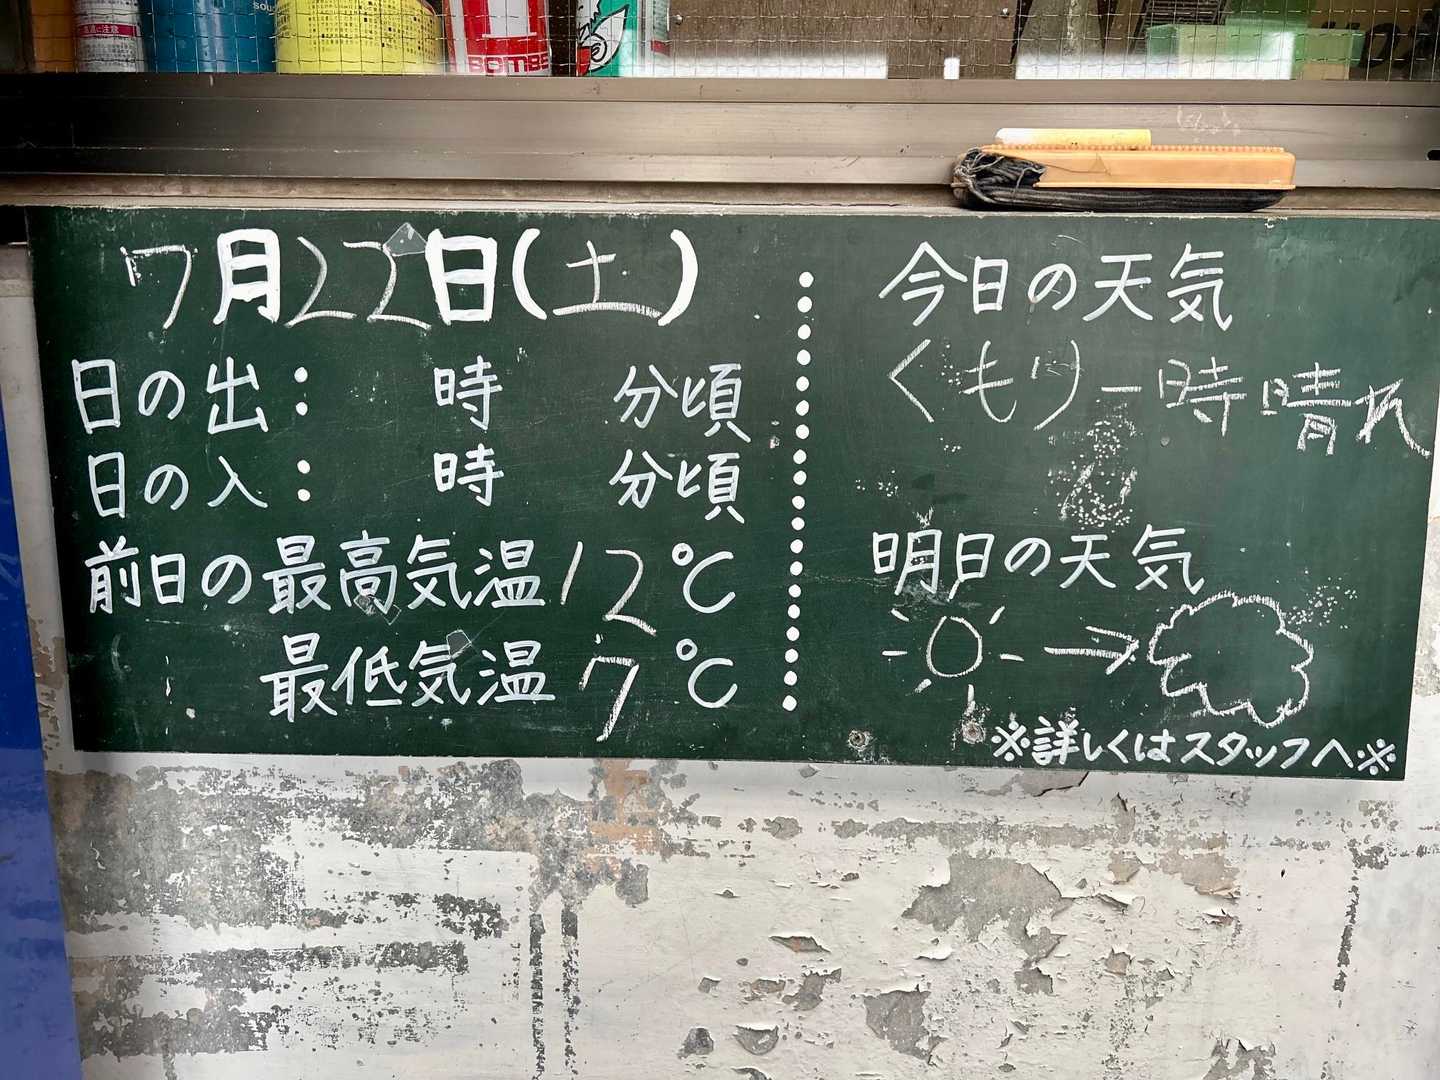 BOMBE
7月22日(土)
日の出: 時 分頃
日の入: 時 分頃
前日の最高気温12℃
最低気温7℃
今日の天気
くもり一時晴れ
明日の天気
※詳しくはスタッフへ※